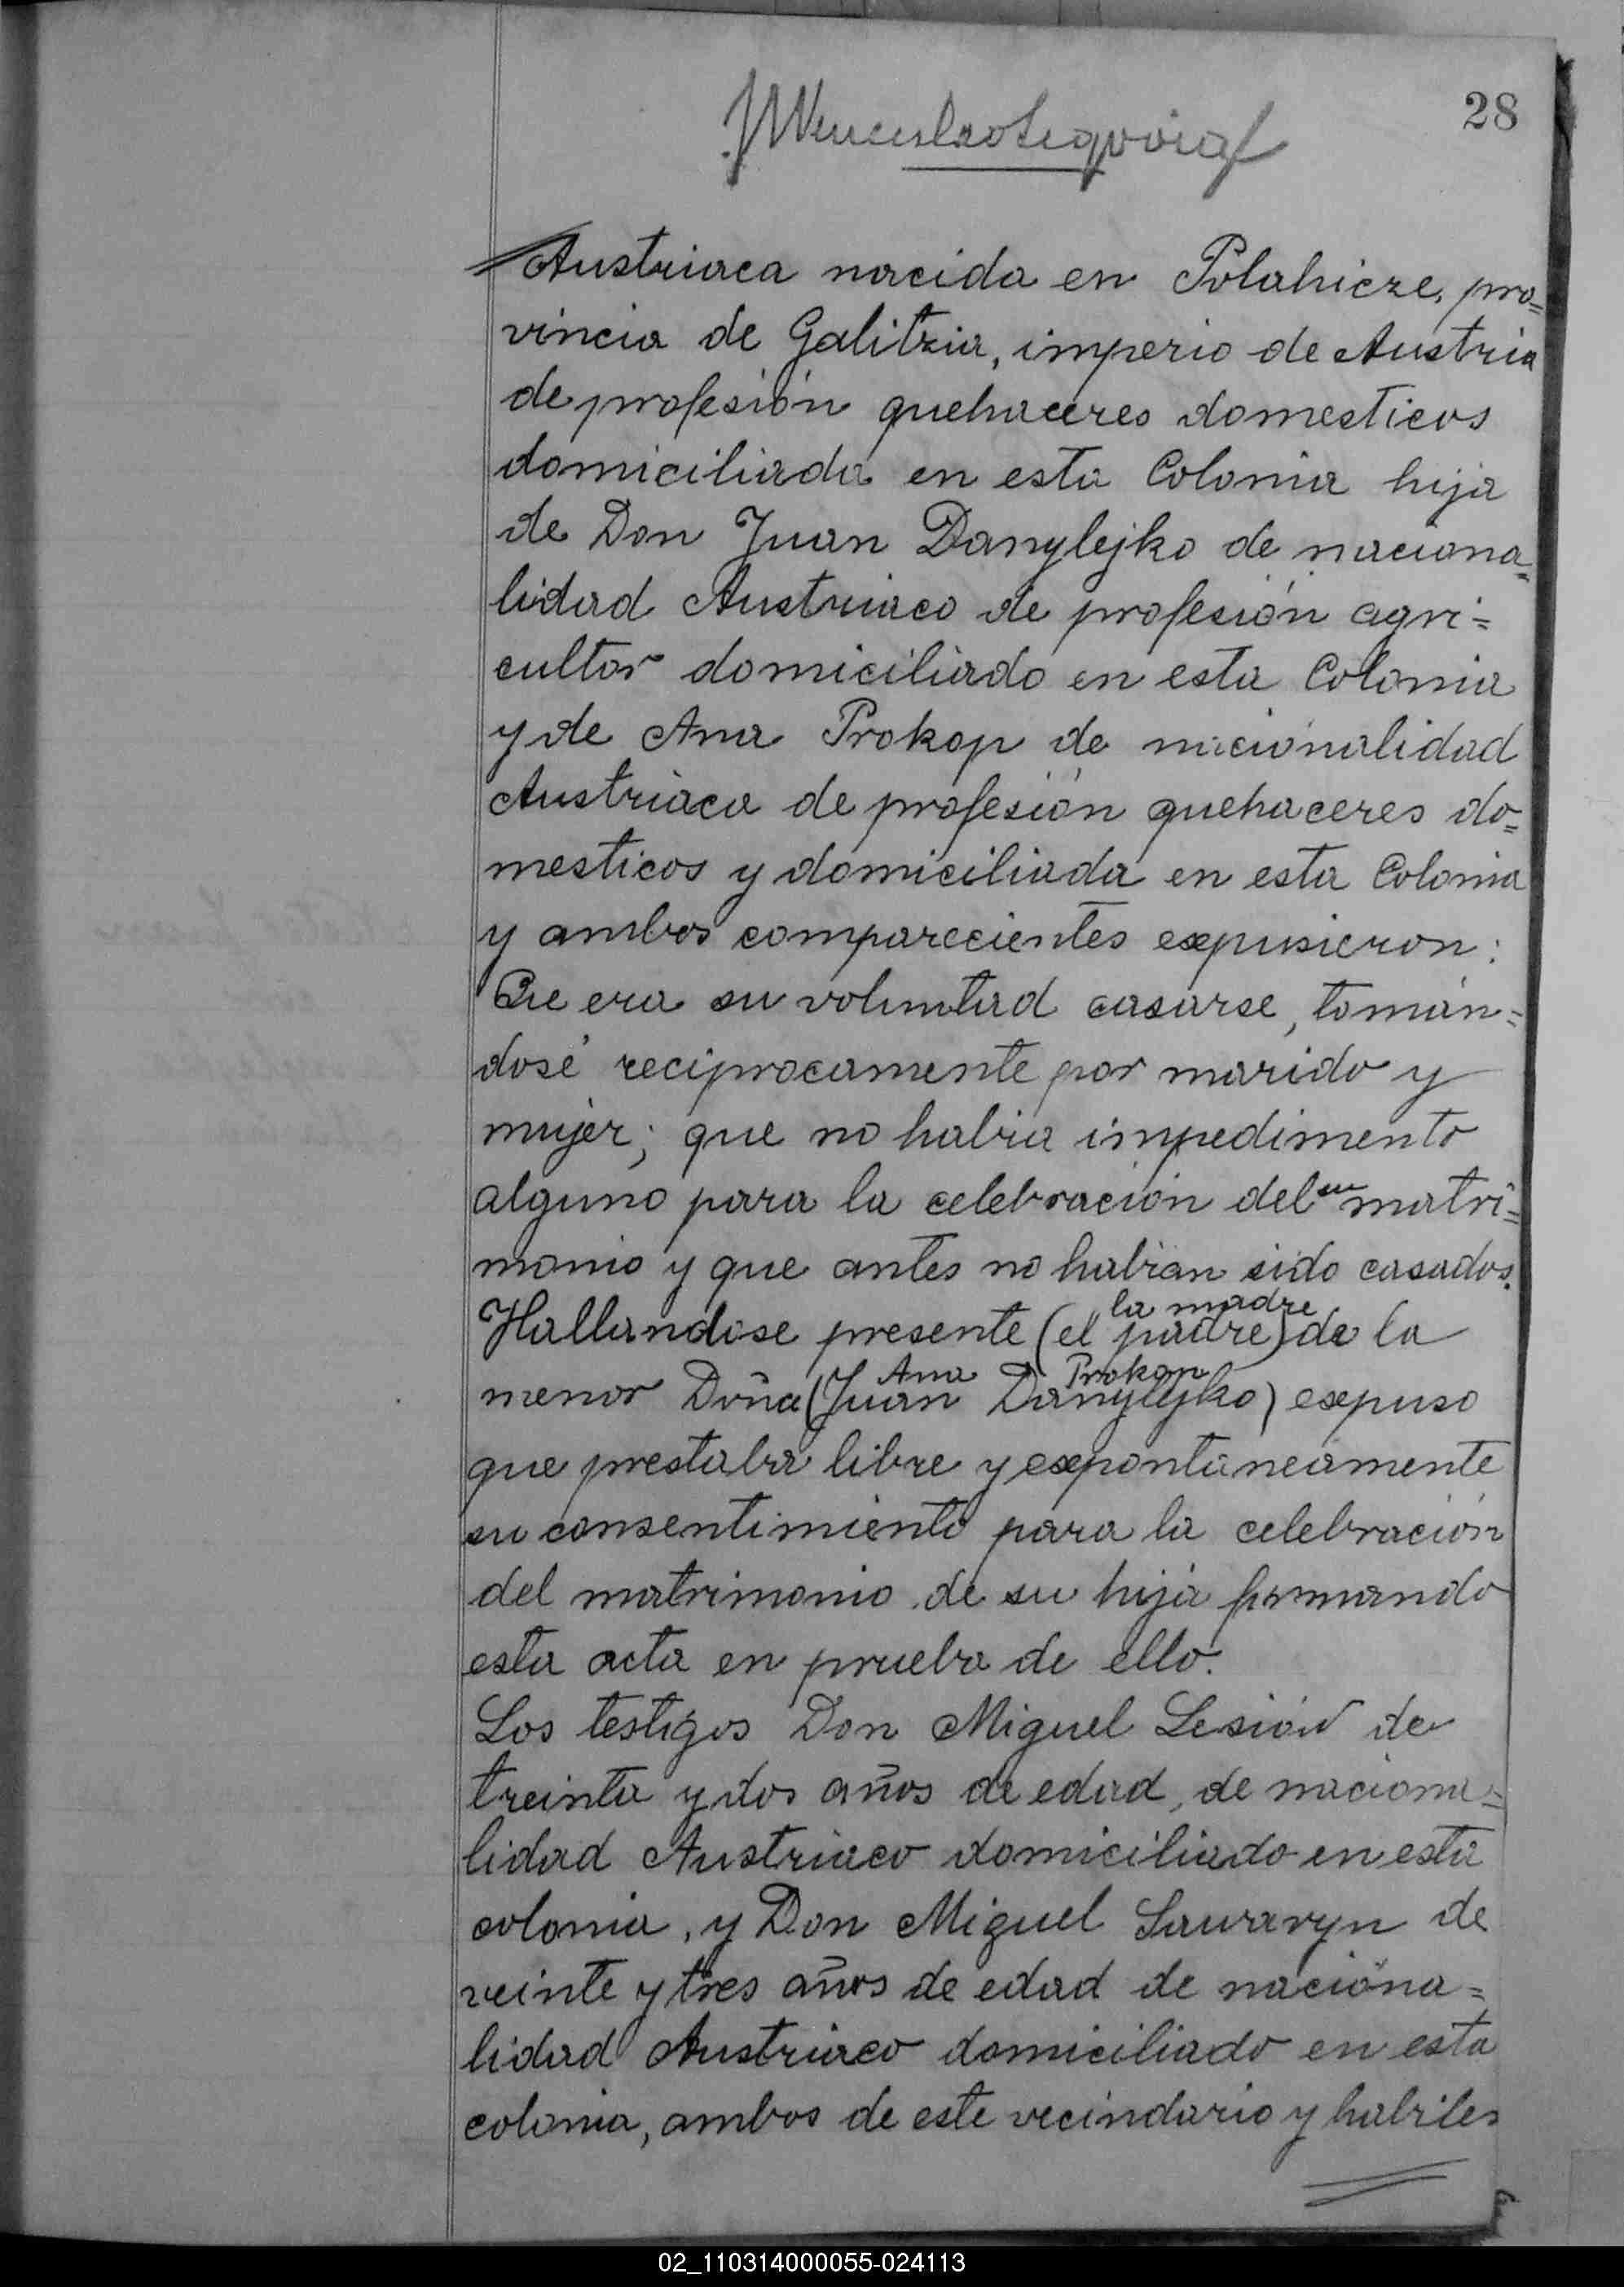 28
Austriaca nacida en Polahicze, pro=
vincia de Galitzia, imperio de Austria
de profesión quehaceres domesticos
domiciliada en esta Colonia hija
de Don Juan Danylejko de naciona=
lidad Austriaco de profesión agri=
cultor domiciliado en esta Colonia
y de Ana Prokop de nacionalidad
Austriaca de profesión quehaceres do=
mesticos y domiciliada en esta Colonia
y ambos comparecientes expusieron:
Que era su voluntad casarse, tomán=
dosé reciprocamente por marido y
mujer; que no habia impedimento
alguno para la celebración del su matri=
monio y que antes no habian sido casados.
la madre
Hallandose presente (el padre) de la
Ana Prokop
menor Doña (Juan Danylejko) expuso
que prestaba libre y expontaneamente
su consentimiento para la celebración
del matrimonio de su hija firmando
esta acta en prueba de ello.
Los testigos Don Miguel Lesiów de
treinta y dos años de edad, de naciona=
lidad Austriaco domiciliado en esta
colonia, y Don Miguel Sawaryn de
veinte y tres años de edad de naciona=
lidad Austriaco domiciliado en esta
colonia, ambos de este vecindario y habiles
02_110314000055-024113